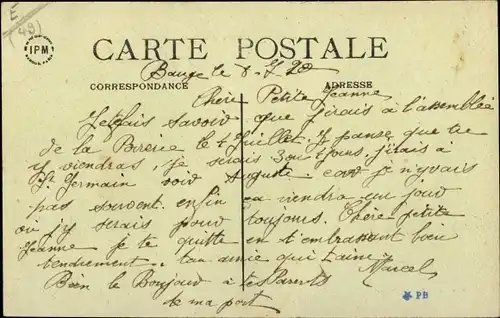 E
(49)
IPM
CARTE POSTALE
CORRESPONDANCE
ADRESSE
Bauge le 20
Chère Petite Jeanne
Je te fais savoir que j'irais à l'assemblée
de la le 4 Juillet. Je panse que tu
y viendras, je serais 3 ou 4 jours, j'irais à
St Germain voir Auguste car je n'y vais
pas souvent. enfin ça viendra un jour
où j'y serais pour toujours. Chère petite
Jeanne je te quitte en t'embrassant bien
tendrement. ton amie qui t'aime
Marcel
Bien le Bonjour à tes Parents
de ma part
PB